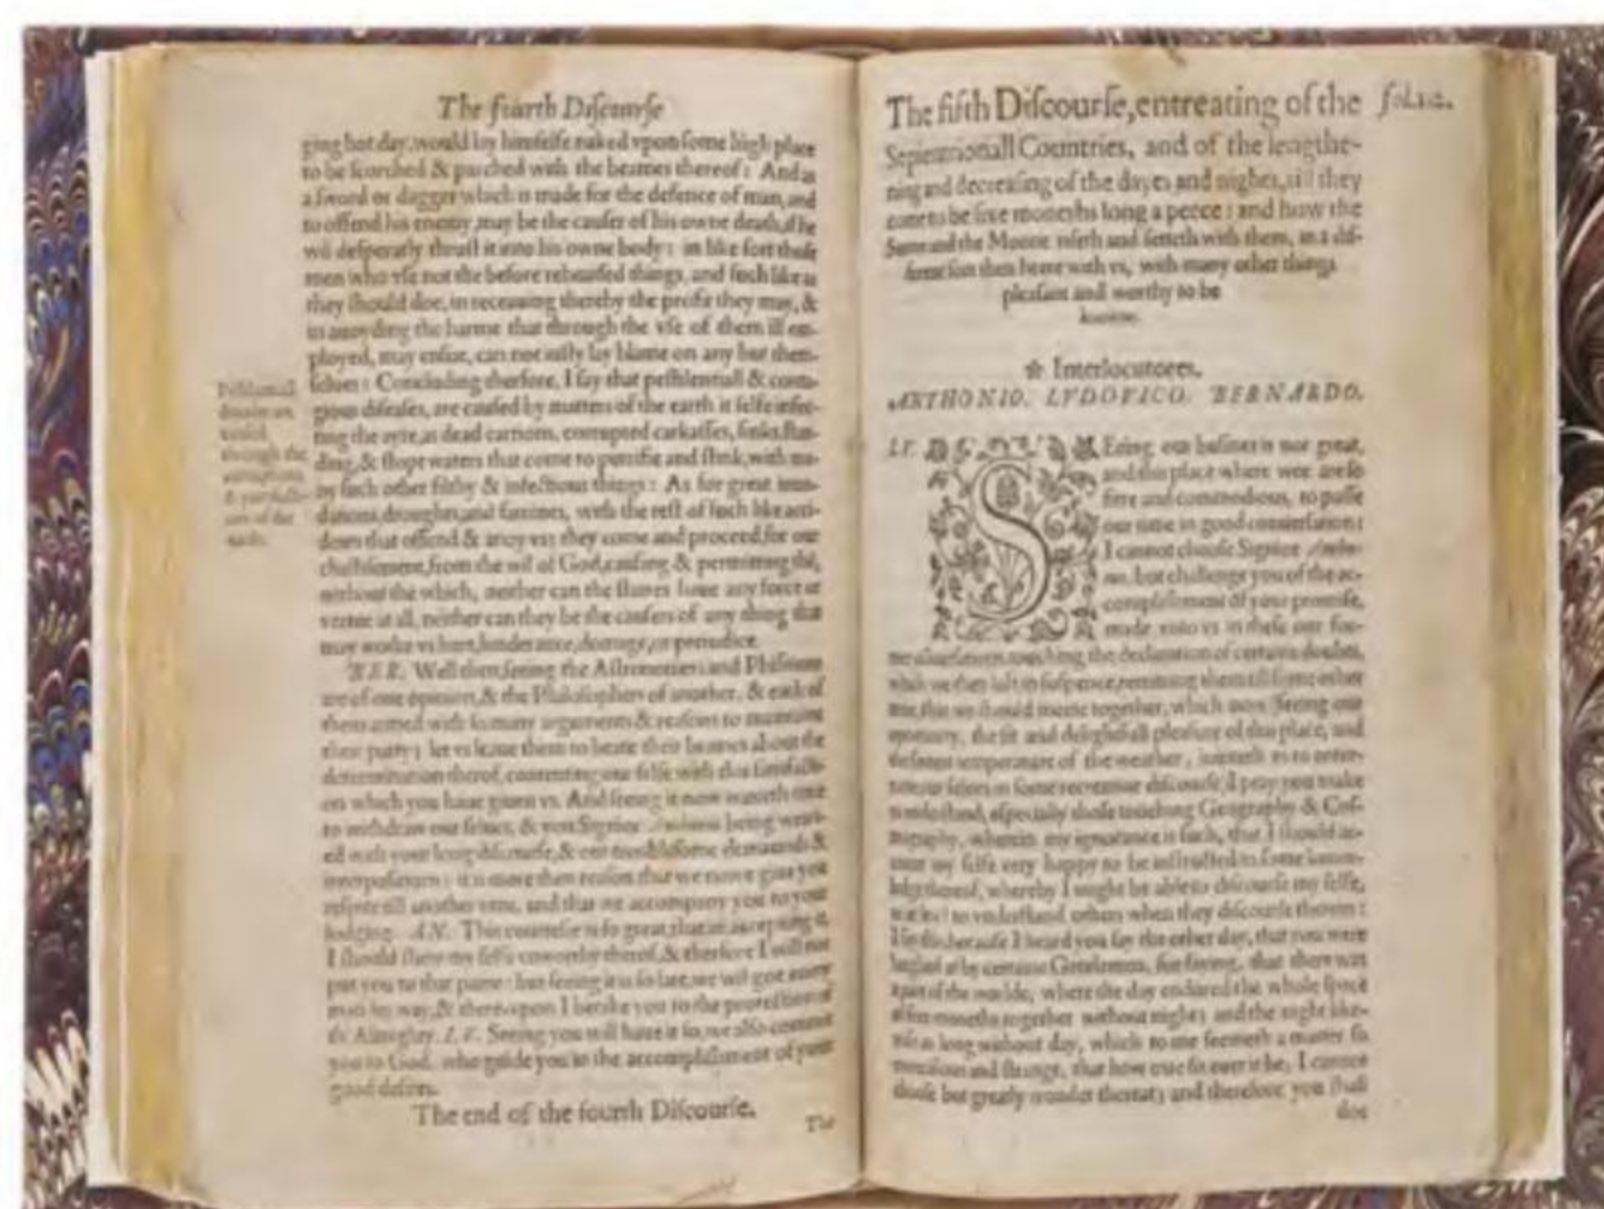 The fourth Diſcourſe
ging hot day, would lay himſelfe naked vpon ſome high place
to be ſcorched & parched with the beames thereof: And as
a ſword or dagger which is made for the defence of man, and
to offend his enemy, may be the cauſer of his owne death, if he
wil deſperatly thruſt it into his owne body: in like ſort theſe
men who vſe not the before rehearſed things, and ſuch like as
they ſhould doe, in receauing thereby the profit they may, &
in auoyding the harme that through the vſe of them ill em-
ployed, may enſue, can not iuſtly lay blame on any but them-
ſelues: Concluding therfore, I ſay that peſtilentiall & conta-
gious diſeaſes, are cauſed by matters of the earth it ſelfe infec-
ting the ayre, as dead carrions, corrupted carkaſſes, ſinks, ſtan-
ding, & waters that come to putrifie and ſtink, with ma-
ny ſuch other filthy & infectious things: As for great inun-
dations, droughts, and famines, with the reſt of ſuch like acci-
dents that offend & anoy vs: they come and proceed, for our
chaſtiſement, from the wil of God, cauſing & permitting thē,
without the which, neither can the ſtarres haue any force or
vertue at all, neither can they be the cauſers of any thing that
may worke vs hurt, hinderance, domage, or preiudice.
BER. Well then, ſeeing the Aſtronomers and Phiſitions
are of one opinion, & the Philoſophers of another, & each of
them armed with ſo many arguments & reaſons to maintaine
their party; let vs leaue them to beate their braines about the
determination therof, contenting our ſelfe with this ſatiſfacti-
on which you haue giuen vs. And ſeeing it now waxeth time
to withdraw our ſelues, & you Signior being weari-
ed with your long diſcourſe, & our troubleſome demaunds &
it is more then reaſon that we now giue you
reſpite till another time, and that we accompany you to your
lodging. AN. This courteſie is ſo great, that in accepting it,
I ſhould ſhew my ſelfe vnworthy therof, & therfore I will not
put you to that paine: but ſeeing it is ſo late, we wil goe euery
man his way, & thereupon I betake you to the protection of
the Almighty. LV. Seeing you will haue it ſo, we alſo commit
you to God, who guide you in the accompliſhment of your
good deſires.
The end of the fourth Diſcourſe.
The
Peſtilentiall
diſeaſes are
cauſed
through the
of the
earth.
The fifth Diſcourſe, entreating of the
Septentrionall Countries, and of the lengthe-
ning and decreaſing of the dayes and nights, till they
come to be ſixe moneths long a peece: and how the
Sunne and the Moone riſeth and ſetteth with them, in a dif-
ferent ſort then heere with vs, with many other things
pleaſant and worthy to be
knowne.
fol.
☆ Interlocutores.
ANTHONIO. LVDOVICO. BERNARDO.
LV. SEeing our buſines is not great,
and this place where wee are ſo
fitte and commodious, to paſſe
our time in good conuerſation:
I cannot chooſe Signior Antho-
nio, but challenge you of the ac-
compliſhment of your promiſe,
made vnto vs in theſe our for-
touching the declaration of certaine doubts,
which we then left in ſuſpence, remitting them till ſome other
time, that we ſhould meete together, which now ſeeing our
oportunity, the fit and delightfull pleaſure of this place, and
the ſweet temperature of the weather, inuiteth vs to enter-
taine our ſelues in ſome recreatiue diſcourſe, I pray you make
vs vnderſtand, eſpecially thoſe touching Geography & Coſ-
mography, wherein my ignorance is ſuch, that I ſhould ac-
count my ſelfe very happy to be inſtructed in ſome know-
ledge thereof, whereby I might be able to diſcourſe my ſelfe,
or at leaſt to vnderſtand others when they diſcourſe thereon:
I ſay this, becauſe I heard you ſay the other day, that you were
laughed at by certaine Gentlemen, for ſaying, that there was
a part of the worlde, where the day endured the whole ſpace
of ſixe moneths together without night; and the night like-
wiſe as long without day, which to me ſeemeth a matter ſo
monſtrous and ſtrange, that how true ſo euer it be, I cannot
chooſe but greatly wonder thereat; and therefore you ſhall
doe